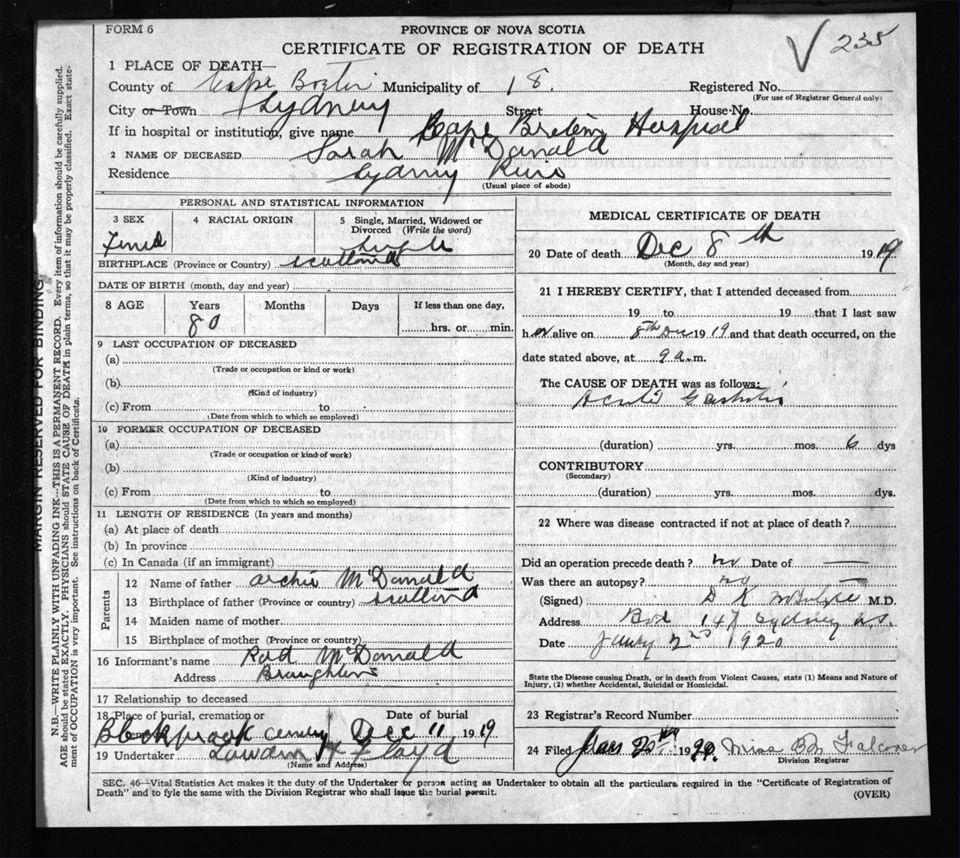 FORM 6
PROVINCE OF NOVA SCOTIA
CERTIFICATE OF REGISTRATION OF DEATH
235
1 PLACE OF DEATH—
County of Cape Municipality of 18. Registered No.
(For use of Registrar General only)
City or Town Sydney Street House No.
If in hospital or institution, give name Cape Breton Hospital
2 NAME OF DECEASED Sarah McDonald
Residence Sydney
(Usual place of abode)
PERSONAL AND STATISTICAL INFORMATION
3 SEX 4 RACIAL ORIGIN 5 Single, Married, Widowed or
Divorced (Write the word)
single
BIRTHPLACE (Province or Country) Scotland
DATE OF BIRTH (month, day and year)
8 AGE Years Months Days If less than one day,
80 hrs. or min.
9 LAST OCCUPATION OF DECEASED
(a)
(Trade or occupation or kind or work)
(b)
(Kind of industry)
(c) From to
(Date from which to which so employed)
10 FORMER OCCUPATION OF DECEASED
(a)
(Trade or occupation or kind of work)
(b)
(Kind of industry)
(c) From to
(Date from which to which so employed)
11 LENGTH OF RESIDENCE (In years and months)
(a) At place of death
(b) In province
(c) In Canada (if an immigrant)
Parents
12 Name of father Archie McDonald
13 Birthplace of father (Province or country) Scotland
14 Maiden name of mother
15 Birthplace of mother (Province or country)
16 Informant's name Rod McDonald
Address Broughton
17 Relationship to deceased
18 Place of burial, cremation or Date of burial
Dec 11 1919
19 Undertaker Lloyd
(Name and Address)
MEDICAL CERTIFICATE OF DEATH
20 Date of death Dec 8th 1919
(Month, day and year)
21 I HEREBY CERTIFY, that I attended deceased from
19 to 19 that I last saw
h er alive on 8th Dec 1919 and that death occurred, on the
date stated above, at 9 a.m.
The CAUSE OF DEATH was as follows:
Acute Gastritis
(duration) yrs. mos. 6 dys
CONTRIBUTORY
(Secondary)
(duration) yrs. mos. dys.
22 Where was disease contracted if not at place of death?
Did an operation precede death? no Date of —
Was there an autopsy? no —
(Signed) D K McIntyre M.D.
Address Box 147 Sydney N.S.
Date Jany 2nd 1920
State the Disease causing Death, or in death from Violent Causes, state (1) Means and Nature of
Injury, (2) whether Accidental, Suicidal or Homicidal.
23 Registrar's Record Number
24 Filed 19
Division Registrar
SEC. 46—Vital Statistics Act makes it the duty of the Undertaker or person acting as Undertaker to obtain all the particulars required in the "Certificate of Registration of
Death" and to fyle the same with the Division Registrar who shall issue the burial permit.
(OVER)
MARGIN RESERVED FOR BINDING
N.B.—WRITE PLAINLY WITH UNFADING INK—THIS IS A PERMANENT RECORD. Every item of information should be carefully supplied.
AGE should be stated EXACTLY. PHYSICIANS should STATE CAUSE OF DEATH in plain terms, so that it may be properly classified. Exact state-
ment of OCCUPATION is very important. See instructions on back of Certificate.